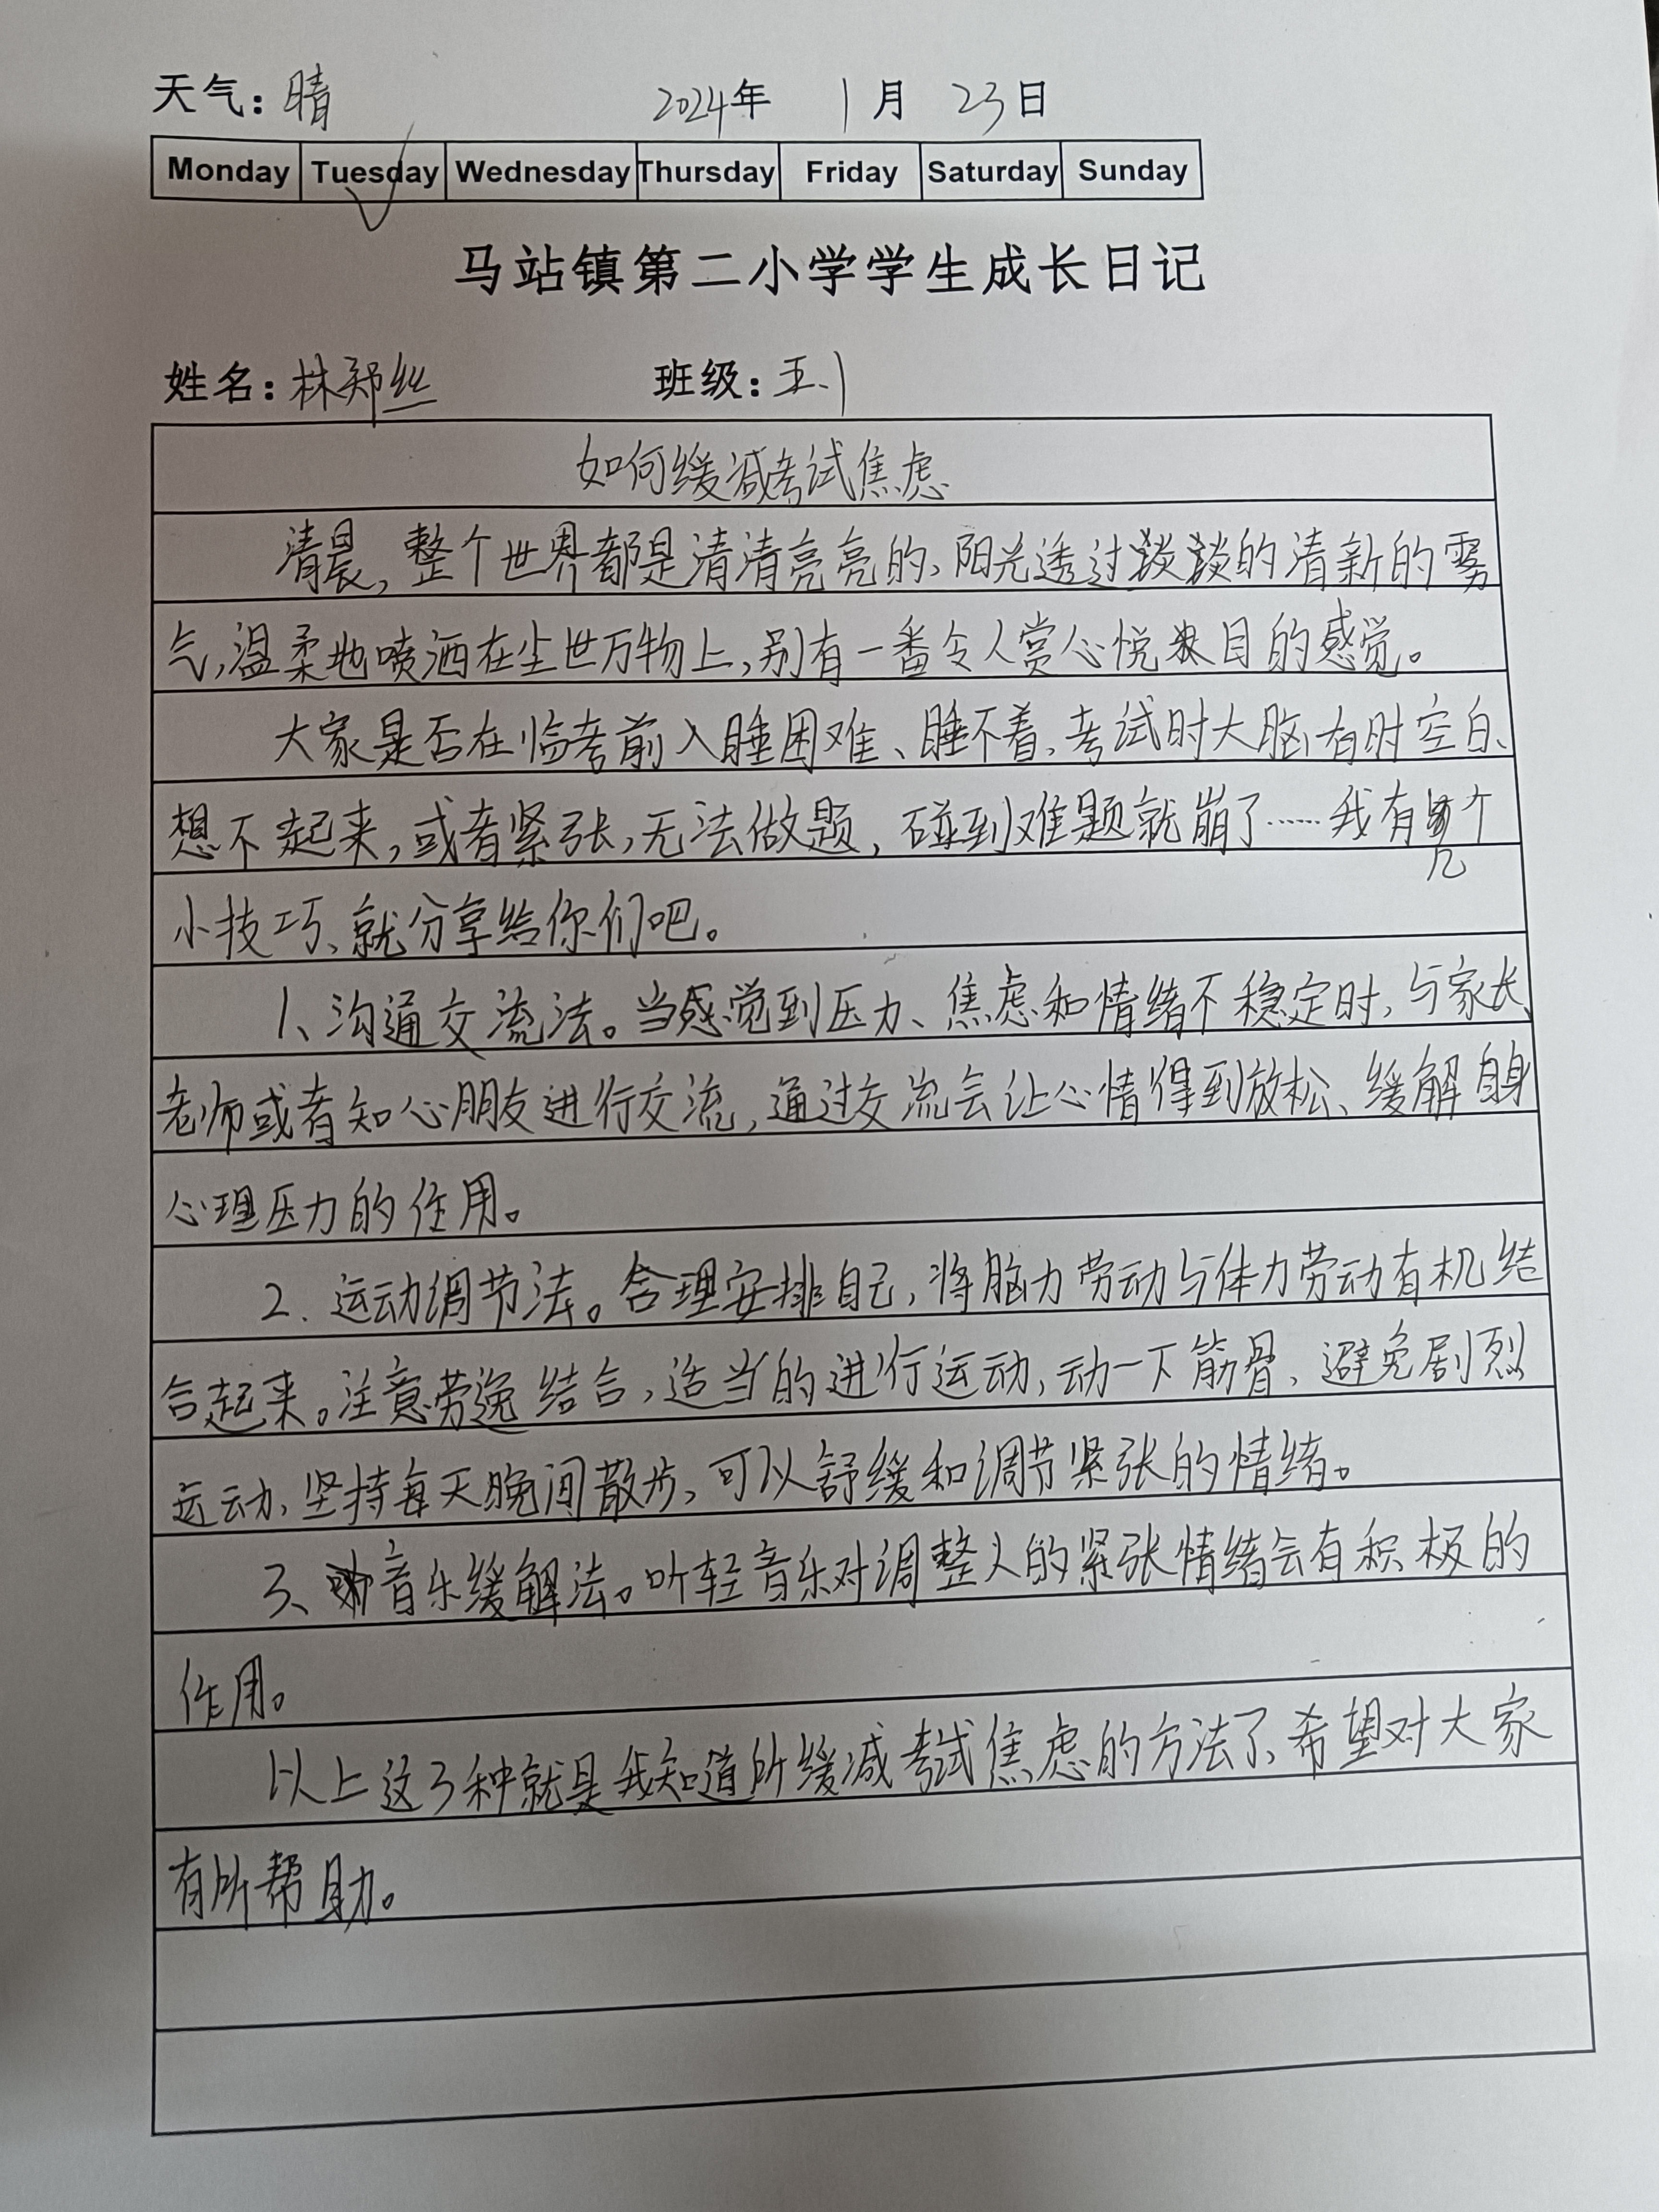 天气：晴 2024年 1月 23日
Monday Tuesday Wednesday Thursday Friday Saturday Sunday
马站镇第二小学学生成长日记
姓名：林郑丝 班级：五.1
如何缓减考试焦虑
清晨，整个世界都是清清亮亮的、阳光透过淡淡的清新的雾
气，温柔地喷洒在尘世万物上，别有一番令人赏心悦目的感觉。
大家是否在临考前入睡困难、睡不着、考试时大脑有时空白、
想不起来，或者紧张，无法做题，碰到难题就崩了……我有几个
小技巧、就分享给你们吧。
1、沟通交流法。当感觉到压力、焦虑和情绪不稳定时，与家长、
老师或者知心朋友进行交流，通过交流会让心情得到放松、缓解自身
心理压力的作用。
2.运动调节法。合理安排自己，将脑力劳动与体力劳动有机结
合起来。注意劳逸结合，适当的进行运动，动一下筋骨、避免剧烈
运动、坚持每天晚间散步，可以舒缓和调节紧张的情绪。
3、音乐缓解法。听轻音乐对调整人的紧张情绪会有积极的
作用。
以上这3种就是我知道所缓减考试焦虑的方法了、希望对大家
有所帮助。